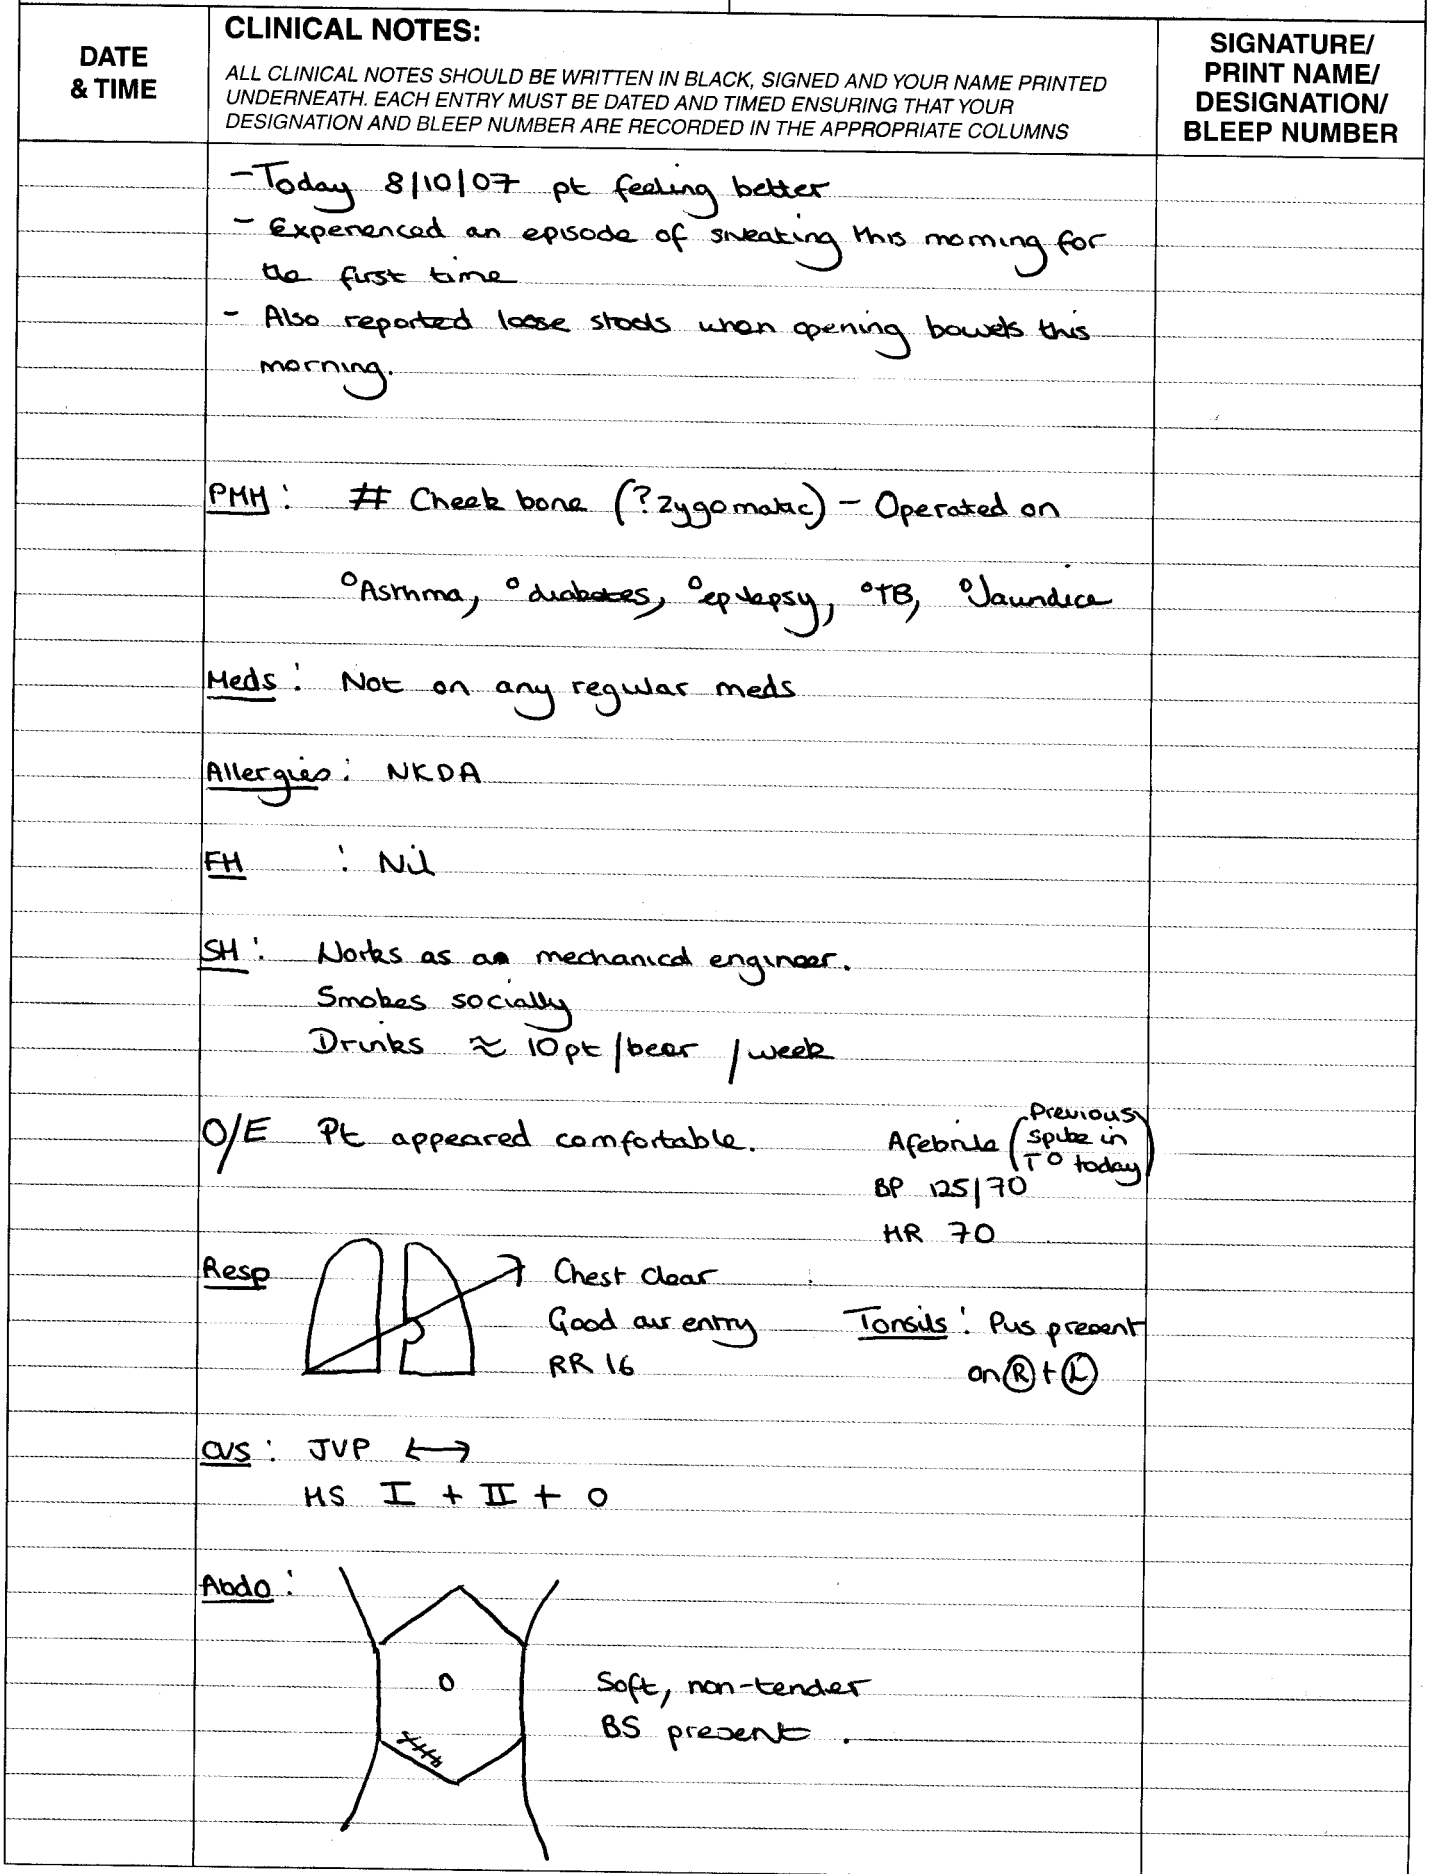 DATE
& TIME
CLINICAL NOTES:
ALL CLINICAL NOTES SHOULD BE WRITTEN IN BLACK, SIGNED AND YOUR NAME PRINTED
UNDERNEATH. EACH ENTRY MUST BE DATED AND TIMED ENSURING THAT YOUR
DESIGNATION AND BLEEP NUMBER ARE RECORDED IN THE APPROPRIATE COLUMNS
SIGNATURE/
PRINT NAME/
DESIGNATION/
BLEEP NUMBER
- Today 8/10/07 pt feeling better
- Experienced an episode of sweating this morning for
the first time
- Also reported loose stools when opening bowels this
morning.
PMH : # Cheek bone (?zygomatic) - Operated on
°Asthma, °diabetes, °epilepsy, °TB, °Jaundice
Meds : Not on any regular meds
Allergies : NKDA
FH : Nil
SH : Works as a mechanical engineer.
Smokes socially
Drinks ≈ 10pt /beer /week
O/E Pt appeared comfortable. Afebrile (Previous
spike in
T° today)
BP 125/70
HR 70
Resp Chest clear
Good air entry
RR 16
Tonsils : Pus present
on Ⓡ + Ⓛ
CVS : JVP ↔
HS I + II + 0
Abdo :
Soft, non-tender
BS present .